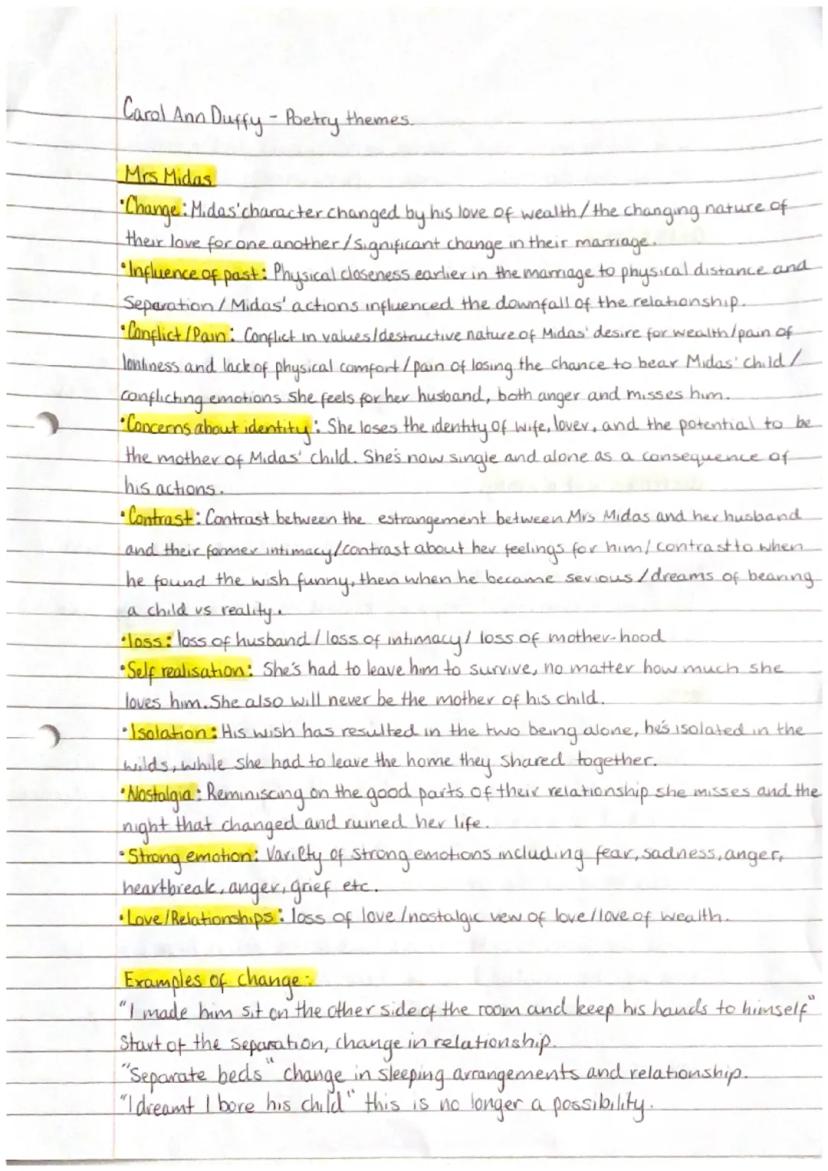 Carol Ann Duffy - Poetry themes.
Mrs Midas
•Change: Midas' character changed by his love of wealth/the changing nature of
their love for one another/significant change in their marriage.
•Influence of past: Physical closeness earlier in the marriage to physical distance and
Separation/Midas' actions influenced the downfall of the relationship.
•Conflict/Pain: Conflict in values/destructive nature of Midas' desire for wealth/pain of
lonliness and lack of physical comfort/pain of losing the chance to bear Midas' child/
conflicting emotions she feels for her husband, both anger and misses him.
•Concerns about identity: She loses the identity of wife, lover, and the potential to be
the mother of Midas' child. She's now single and alone as a consequence of
his actions.
•Contrast: Contrast between the estrangement between Mrs Midas and her husband
and their former intimacy/contrast about her feelings for him/contrast to when
he found the wish funny, then when he became serious/dreams of bearing
a child vs reality.
•loss: loss of husband/loss of intimacy/loss of mother-hood
•Self realisation: She's had to leave him to survive, no matter how much she
loves him. She also will never be the mother of his child.
•Isolation: His wish has resulted in the two being alone, he's isolated in the
wilds, while she had to leave the home they shared together.
•Nostalgia: Reminiscing on the good parts of their relationship she misses and the
night that changed and ruined her life.
•Strong emotion: Variety of strong emotions including fear, sadness, anger,
heartbreak, anger, grief etc.
•Love/Relationships: loss of love/nostalgic vew of love/love of wealth.
Examples of change:
"I made him sit on the other side of the room and keep his hands to himself"
Start of the separation, change in relationship.
"Separate beds" change in sleeping arrangements and relationship.
"I dreamt I bore his child" this is no longer a possibility.